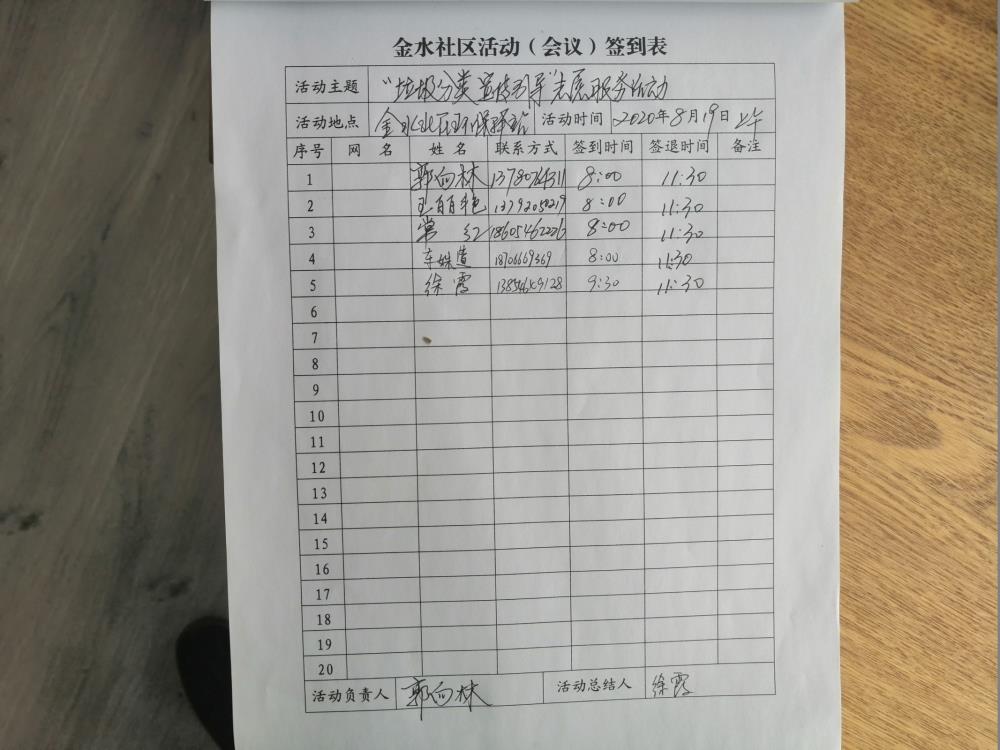 金水社区活动（会议）签到表
活动主题 "垃圾分类宣传引导"志愿服务活动
活动地点 金水社区环保驿站 活动时间 2020年8月19日上午
序号 网 名 姓 名 联系方式 签到时间 签退时间 备注
1 郭向林 8:00 11:30
2 8:00 11:30
3 常 红 18605462226 8:00 11:30
4 车姝逍 8:00 11:30
5 徐霞 9:30 11:30
6
7
8
9
10
11
12
13
14
15
16
17
18
19
20
活动负责人 郭向林 活动总结人 徐霞